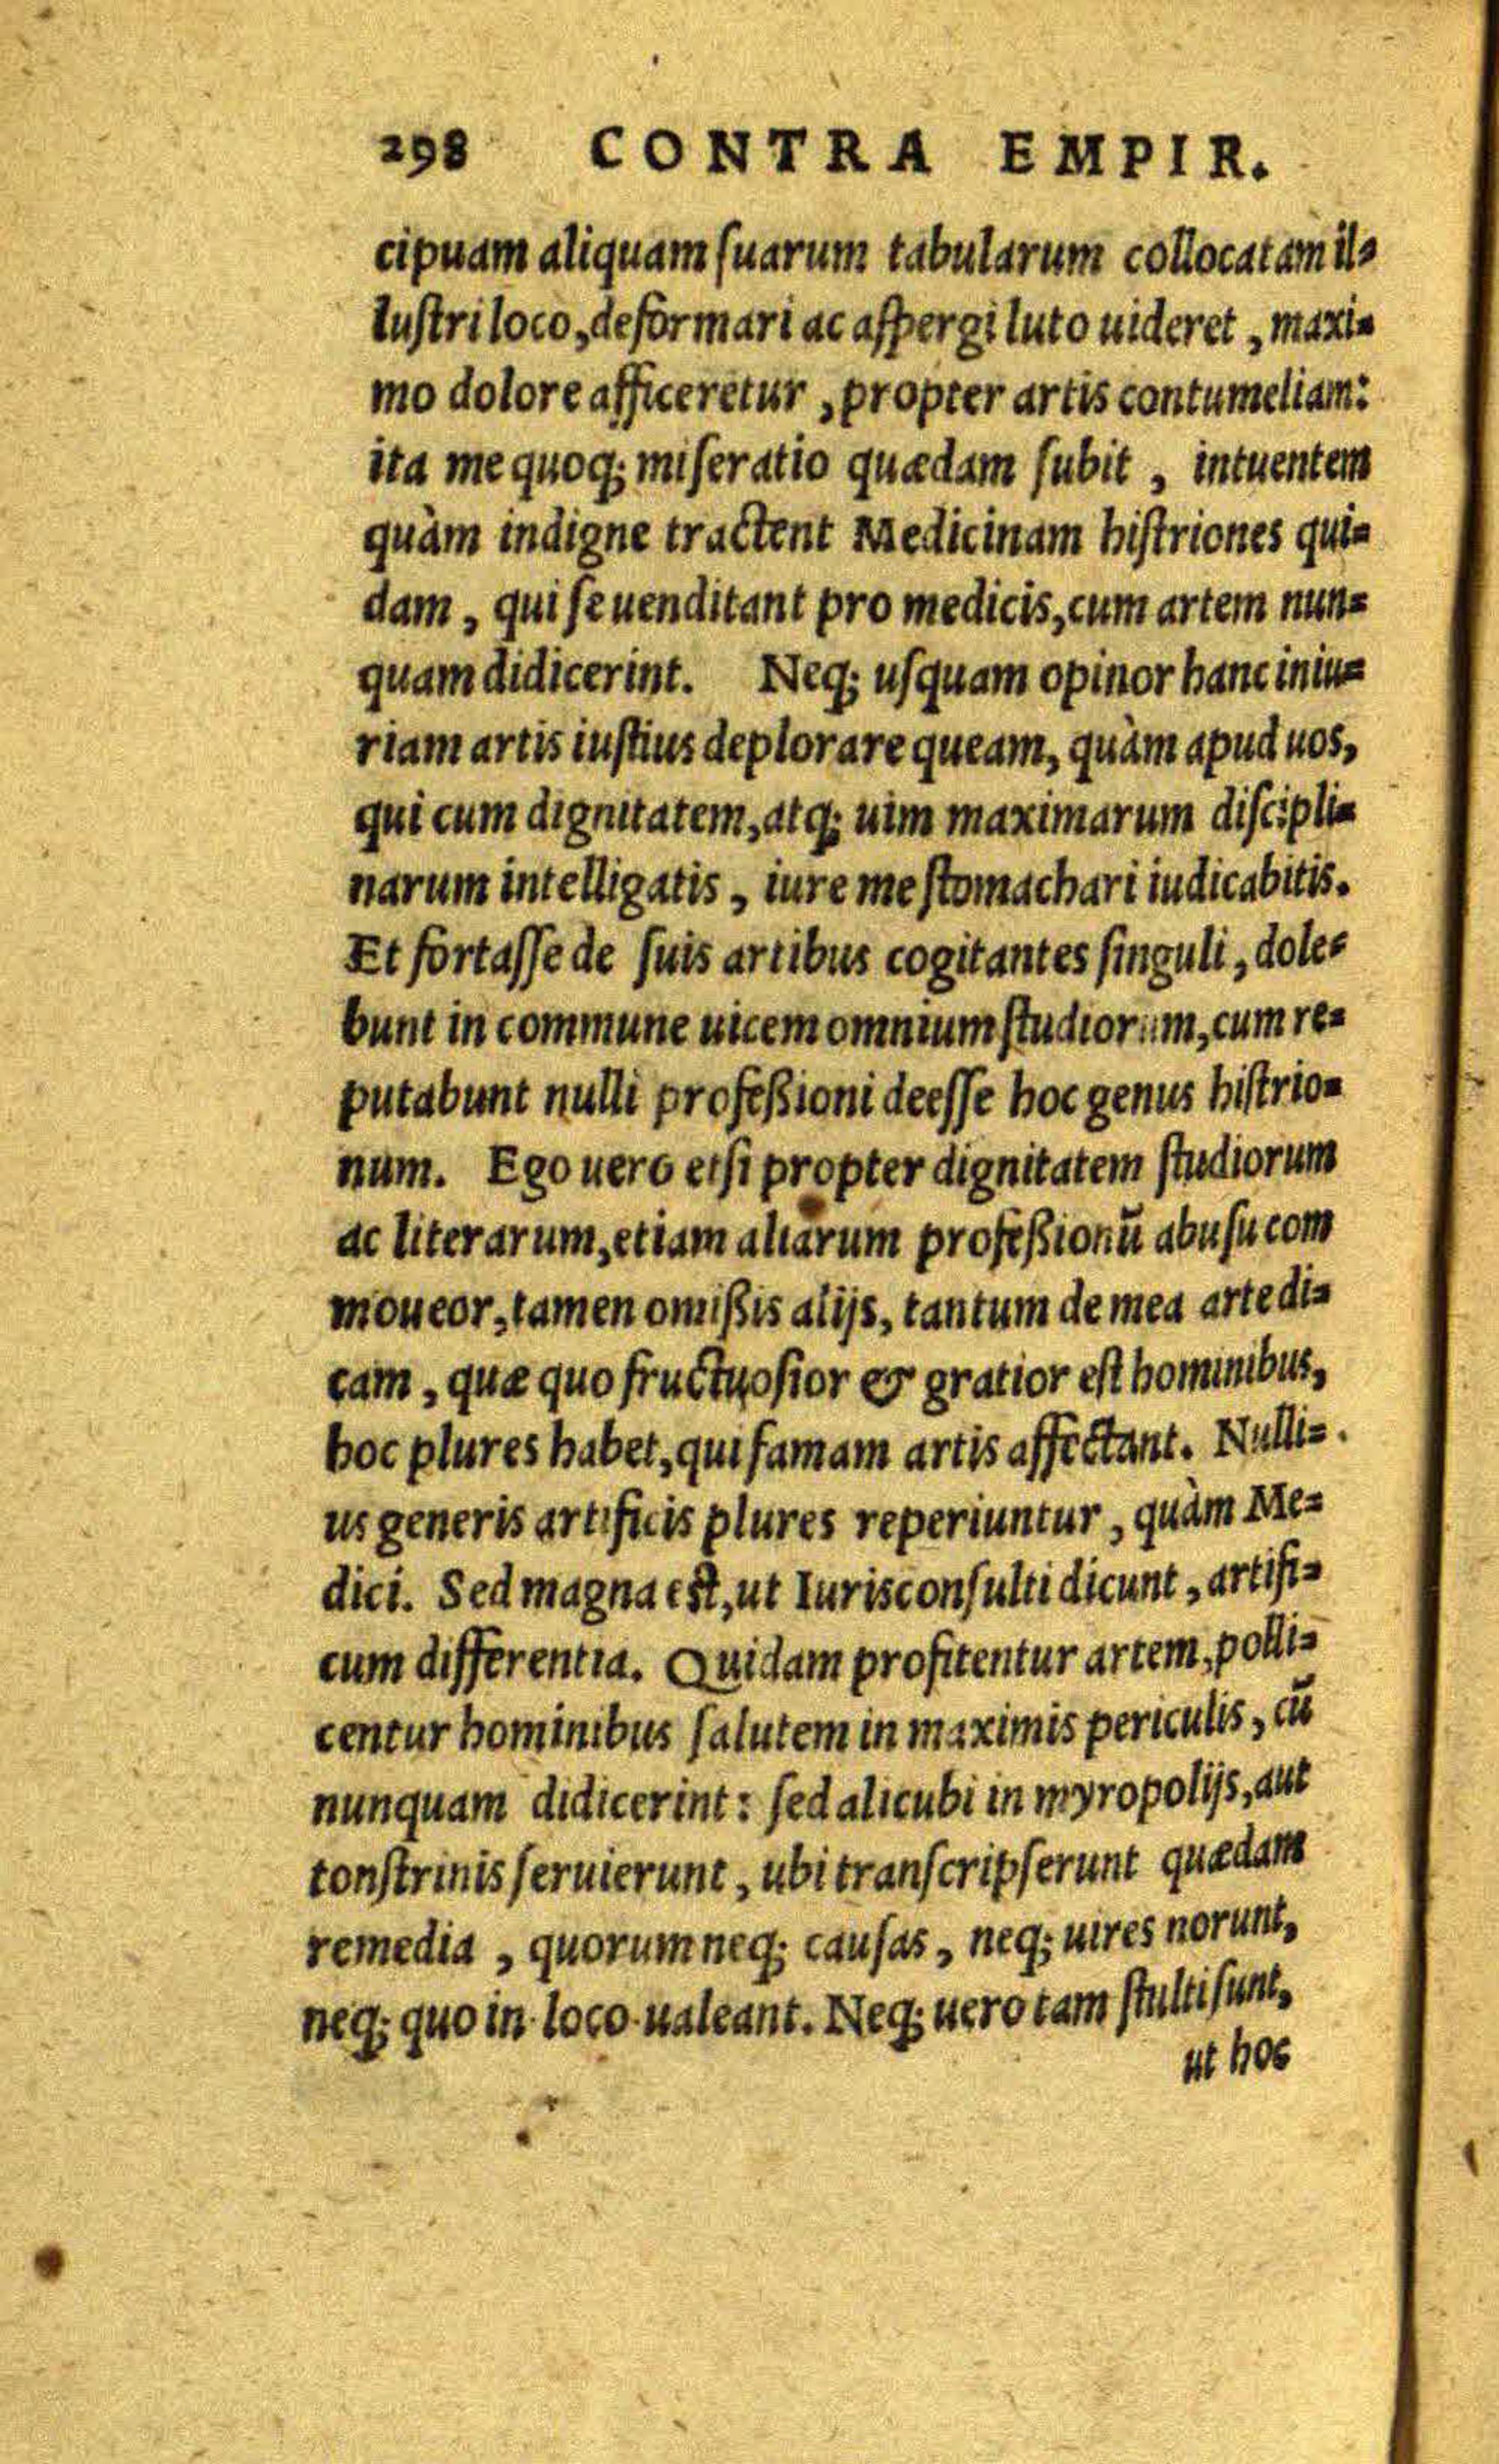 298 CONTRA EMPIR.
cipuam aliquam ſuarum tabularum collocatam il-
luſtri loco, deformari ac aſpergi luto uideret, maxi-
mo dolore afficeretur, propter artis contumeliam:
ita me quoq; miſeratio quædam ſubit, intuentem
quàm indigne tractent Medicinam hiſtriones qui-
dam, qui ſe uenditant pro medicis, cum artem nun-
quam didicerint. Neq; uſquam opinor hanc iniu-
riam artis iuſtius deplorare queam, quàm apud uos,
qui cum dignitatem, atq; uim maximarum diſcipli-
narum intelligatis, iure me ſtomachari iudicabitis.
Et fortaſſe de ſuis artibus cogitantes ſinguli, dole-
bunt in commune uicem omnium ſtudiorum, cum re-
putabunt nulli profeßioni deeſſe hoc genus hiſtrio-
num. Ego uero etſi propter dignitatem ſtudiorum
ac literarum, etiam aliarum profeßionū abuſu com
moueor, tamen omißis alijs, tantum de mea arte di-
cam, quæ quo fructuoſior & gratior eſt hominibus,
hoc plures habet, qui famam artis affectant. Nulli-
us generis artificis plures reperiuntur, quàm Me-
dici. Sed magna eſt, ut Iurisconſulti dicunt, artifi-
cum differentia. Quidam profitentur artem, polli-
centur hominibus ſalutem in maximis periculis, cū
nunquam didicerint: ſed alicubi in myropolijs, aut
tonſtrinis ſeruierunt, ubi tranſcripſerunt quædam
remedia, quorum neq; cauſas, neq; uires norunt,
neq; quo in loco ualeant. Neq; uero tam ſtulti ſunt,
ut hoc